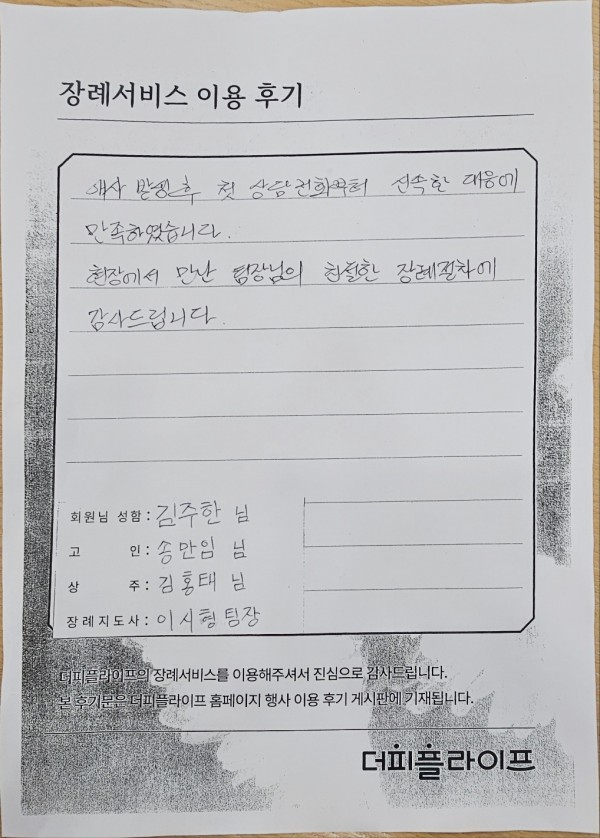 장례서비스 이용 후기
애사 발생후 첫 상담전화부터 신속한 대응에
만족하였습니다.
현장에서 만난 팀장님의 친절한 장례절차에
감사드립니다.
회원님 성함 : 김주한 님
고 인 : 송만임 님
상 주 : 김홍태 님
장례지도사 : 이시형 팀장
더피플라이프의 장례서비스를 이용해주셔서 진심으로 감사드립니다.
본 후기문은 더피플라이프 홈페이지 행사 이용 후기 게시판에 기재됩니다.
더피플라이프